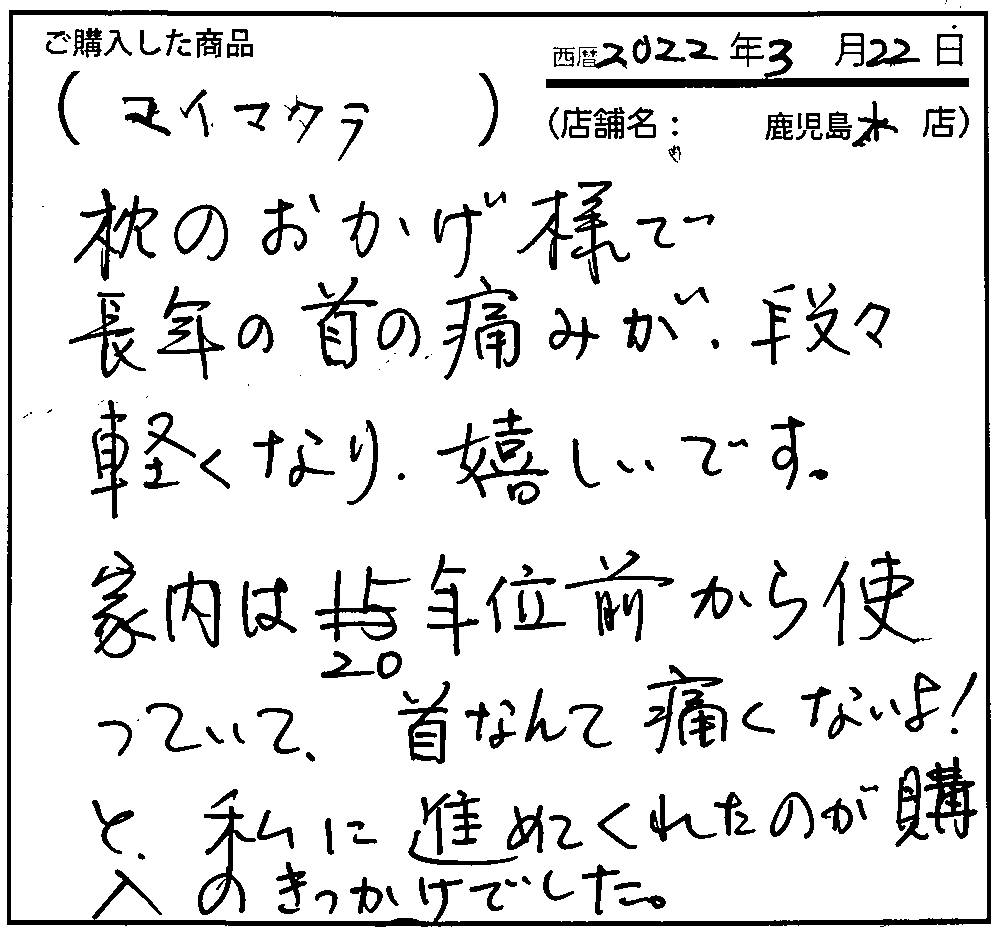 ご購入した商品
西暦2022年3月22日
(マイマクラ)
(店舗名: 鹿児島 店)
枕のおかげ様で
長年の首の痛みが、段々
軽くなり、嬉しいです。
家内は15年位前から使
20
っていて、首なんて痛くないよ!
と、私に進めてくれたのが購
入のきっかけでした。